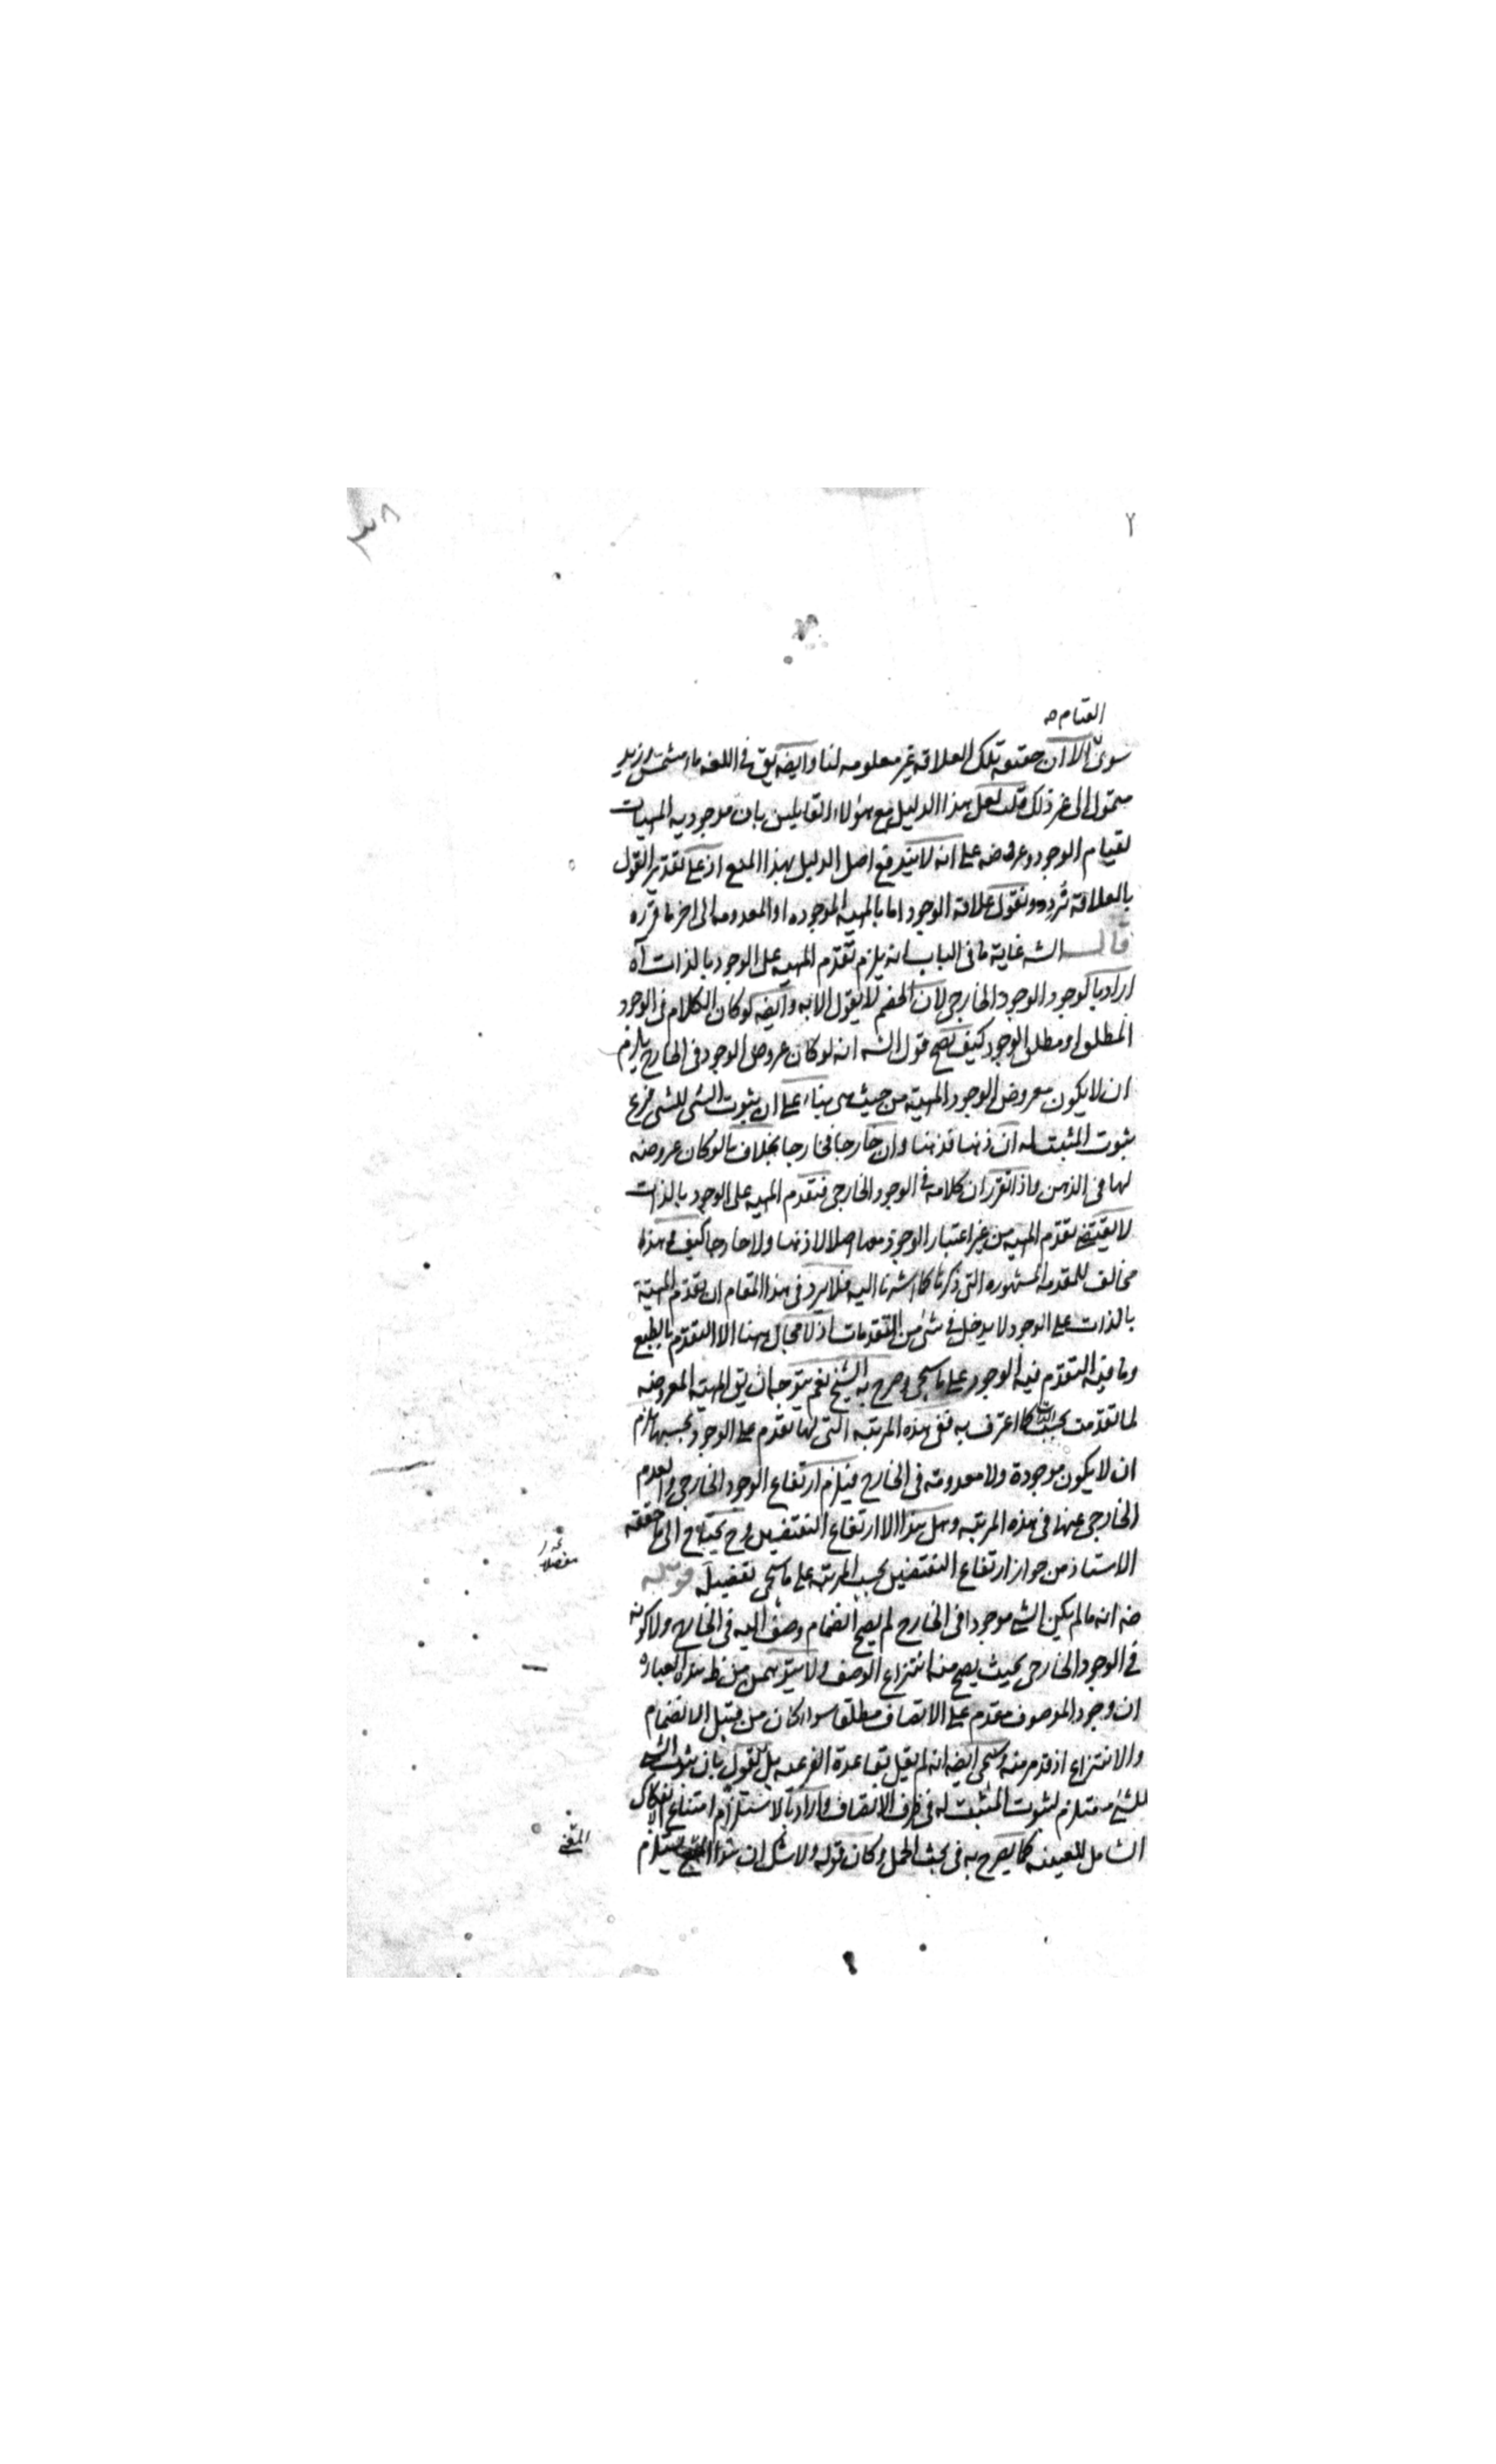 ٢
٣٨
القيام صه
سوى الا ان حقيقه تلك العلاقه غير معلومه لنا وايضه يق فى اللغه ماء مشمس وزيد
متمول الى غير ذلك قلت لعل هذا الدليل مع هؤلاء القايلين بان موجوديه المهيات
لقيام الوجود وعروضه على انه لا يندفع اصل الدليل بهذا المنع اذ على تقدير القول
بالعلاقة نردد ونقول علاقة الوجود اما بالمهيه الموجوده او المعدومه الى اخر ما قرره
قال الشه غاية ما فى الباب انه يلزم تقدم المهيه على الوجود بالذات آه
اراد بالوجود الوجود الخارجى لان الخصم لا يقول الا به وايضه لو كان الكلام فى الوجود
المطلق او مطلق الوجود كيف يصح قول الشه انه لو كان عروض الوجود فى الخارج يلزم
ان لا يكون معروض الوجود المهيته من حيث هى بناء على ان ثبوت الشى للشى فرع
ثبوت المثبت له ان ذهنا فذهنا وان خارجا فخارجا بخلاف ما لو كان عروضه
لها فى الذهن واذا تقرر ان كلامه فى الوجود الخارجى فتقدم المهيه على الوجود بالذات
لا يقتضى تقدم المهيه من غير اعتبار الوجود معها اصلا لا ذهنا ولا خارجا كيف و هذه
مخالف للمقدمه المشهوره التى ذكرنا كما اشرنا اليه فلا يرد فى هذا المقام ان تقدم المهيته
بالذات على الوجود لا يدخل فى شئ من التقدمات اذ لا مجال ههنا الا التقدم بالطبع
وما فيه التقدم فيه الوجود على ما سيجى وصرح به الشيخ نعم يتوجه ان يق المهيته المعروضه
لما تقدمت بحسب الذات كما اعترف به ففى هذه المرتبه التى لها تقدم على الوجود بحسبها يلزم
ان لا يكون موجودة ولا معدومته فى الخارج فيلزم ارتفاع الوجود الخارجى والعدم
الخارجى عنها فى هذه المرتبه وهل هذا الا ارتفاع النقيضين وح يحتاج الى ما حققه
الاستاذ من جواز ارتفاع النقيضين بحسب المرتبه على ما سيجى تفصيله قوله
ضه انه ما لم يكن الشى موجودا فى الخارج لم يصح انضمام وصف اليه فى الخارج ولا كونه
فى الوجود الخارجى بحيث يصح منه انتزاع الوصف ولا يتوهمن من هذه العباره
ان وجود الموصوف مقدم على الاتصاف مطلقا سواء كان من قبيل الانضمام
والانتزاع اذ قد مر منه وسيجى ايضه انه لم يقل بقاعدة الفرعيه بل يقول بان ثبوت الشى
للشئ مستلزم لثبوت المثبت له فى ظرف الاتصاف واراد بالاستلزام امتناع الانفكاك
الشامل للمعيه كما يصرح به فى بحث الحمل وكان قوله ولا شك ان هذا يستلزم
مفصلا
المعنى